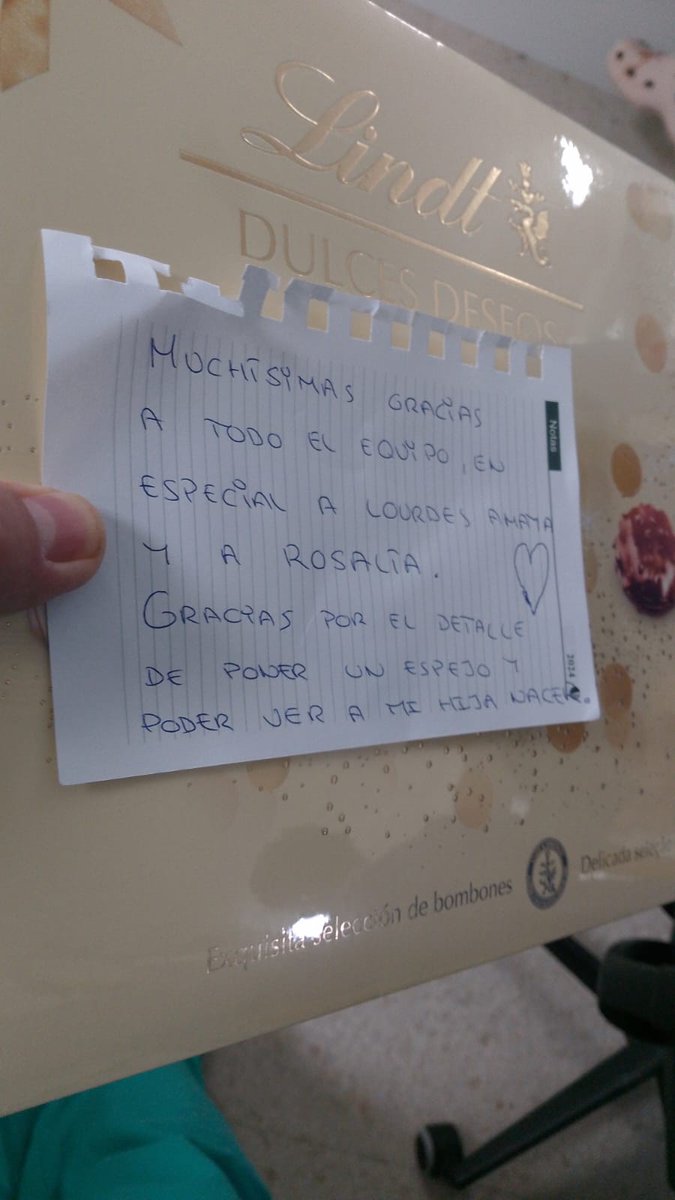 Lindt
DULCES DESEOS
Notas
MUCHÍSIMAS GRACIAS
A TODO EL EQUIPO, EN
ESPECIAL A LOURDES AMAYA
Y A ROSALÍA.
GRACIAS POR EL DETALLE
DE PONER UN ESPEJO Y
PODER VER A MI HIJA NACER.
2024
Exquisita selección de bombones
Delicada